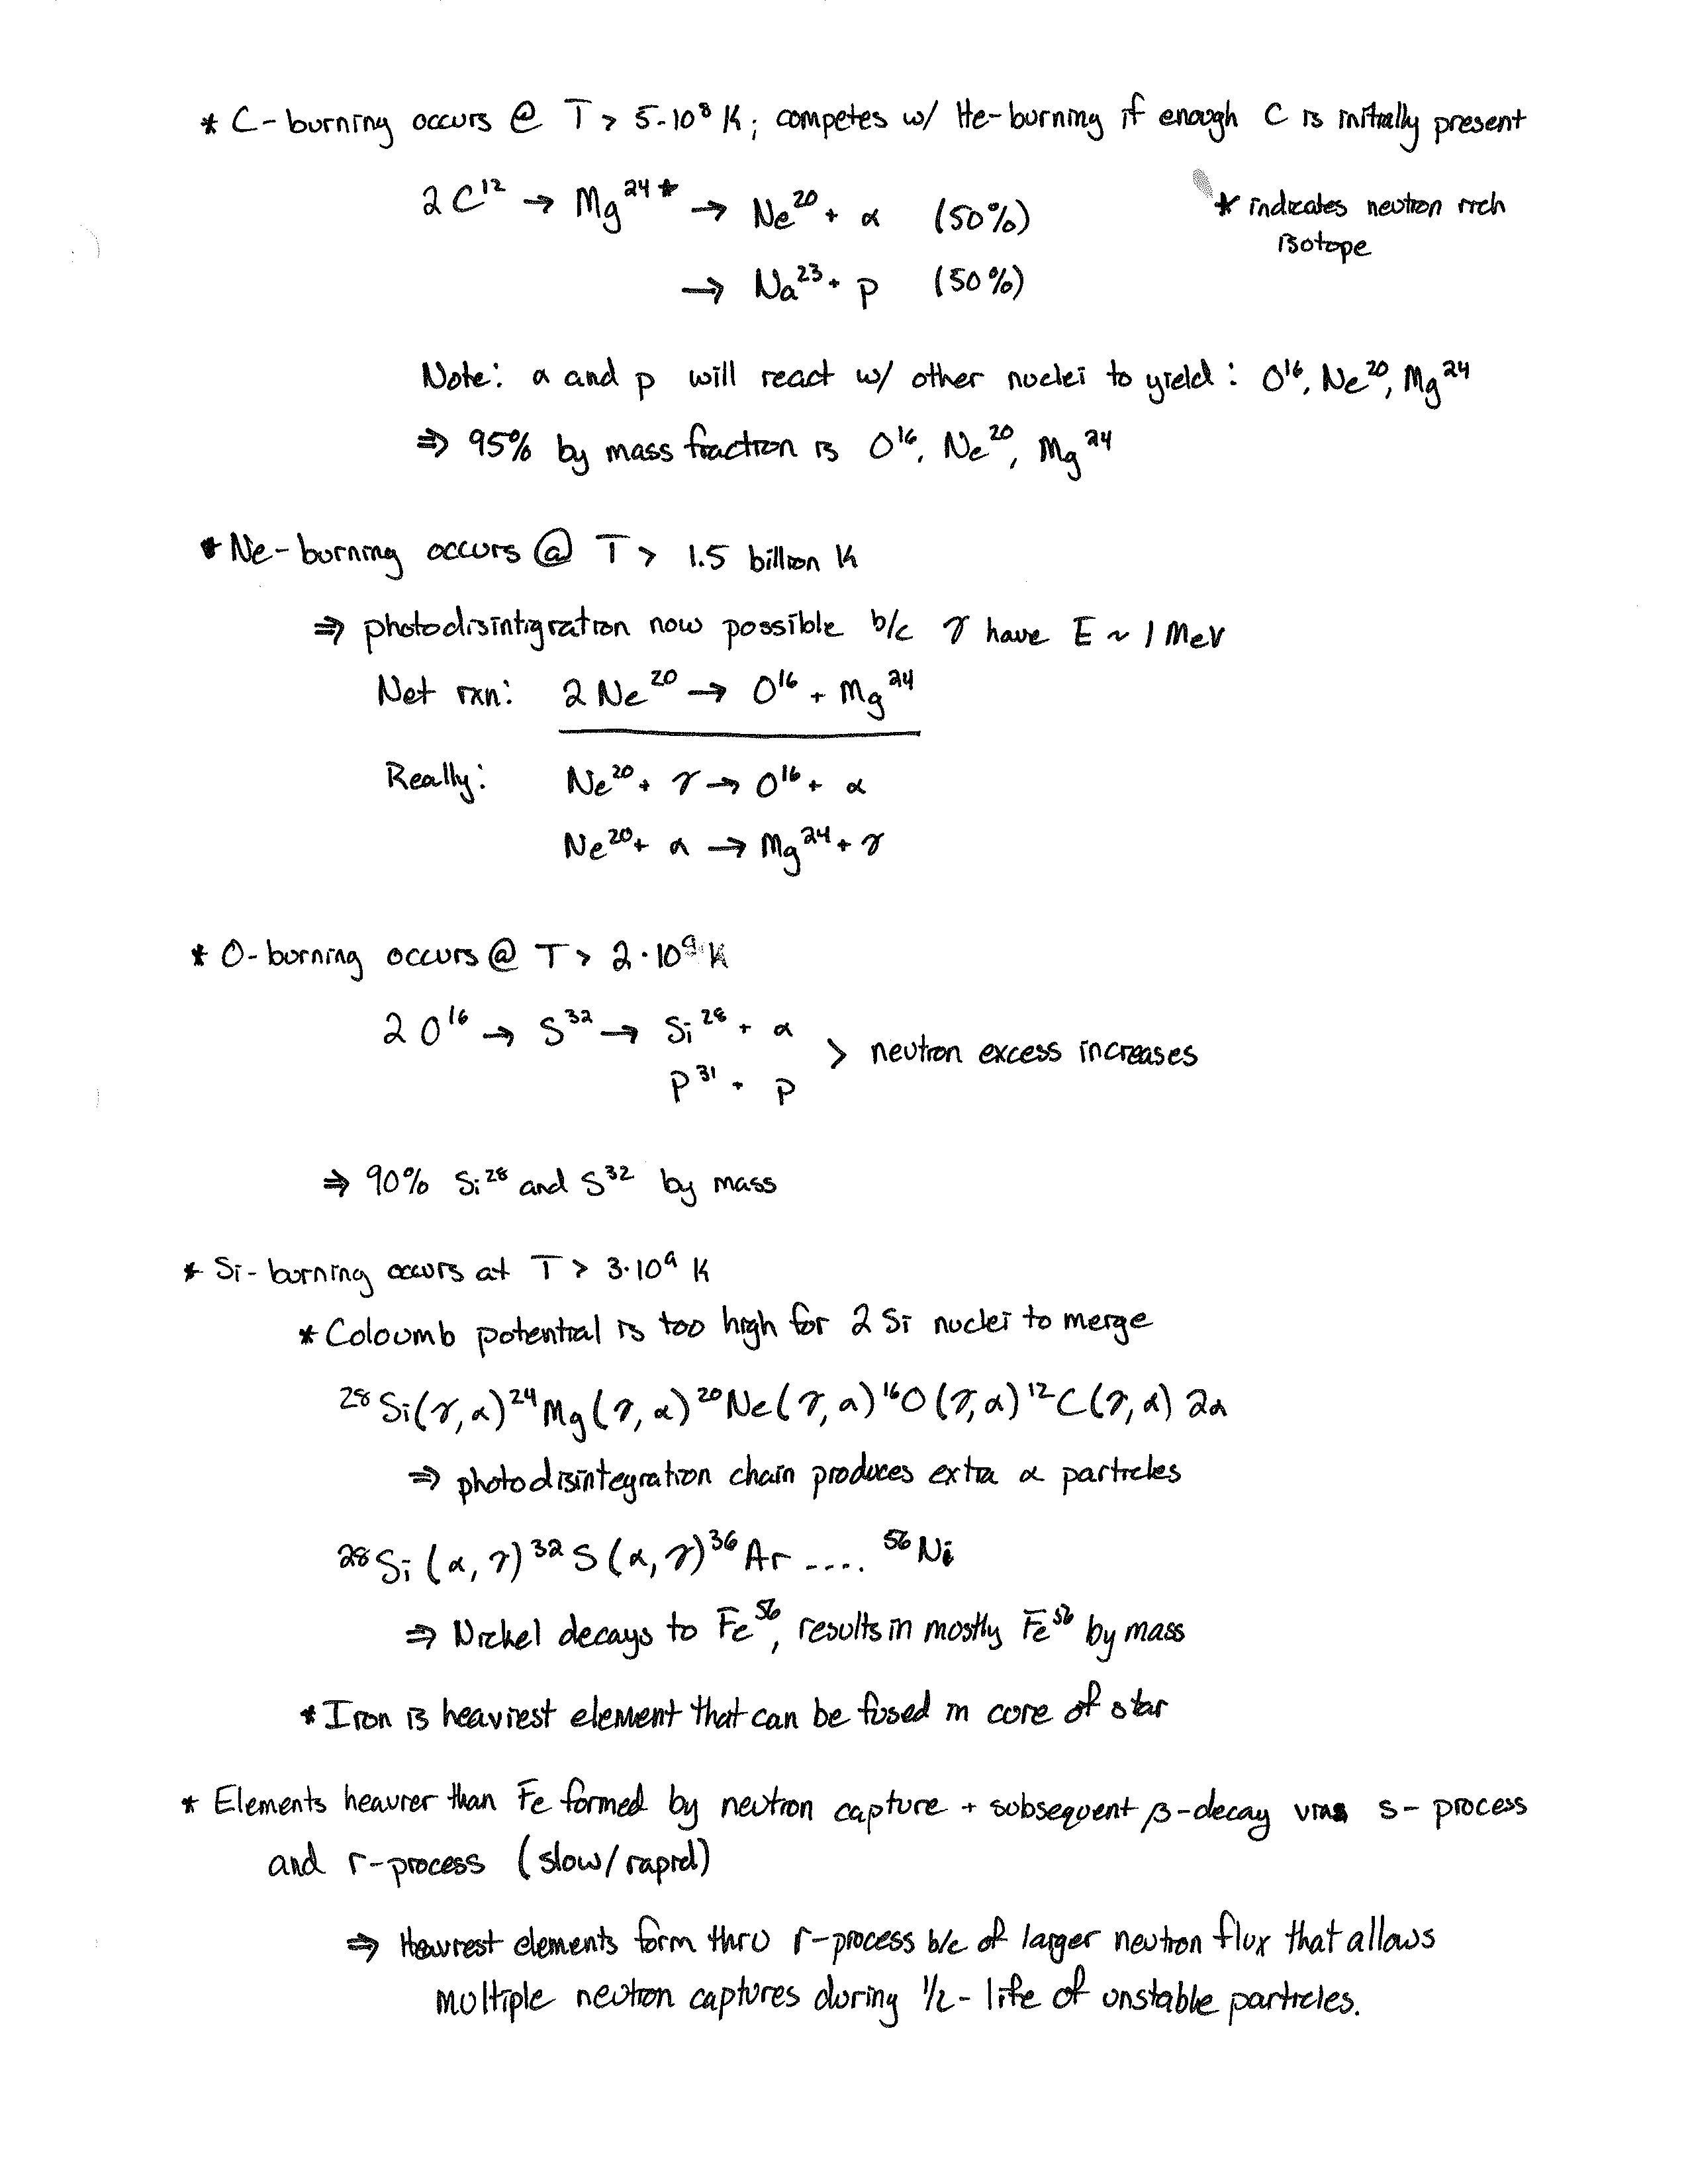 * C-burning occurs @ T > 5·10⁸ K; competes w/ He-burning if enough C is initially present
2 C¹² → Mg²⁴* → Ne²⁰ + α (50%)
* indicates neutron rich
isotope
→ Na²³ + p (50%)
Note: α and p will react w/ other nuclei to yield: O¹⁶, Ne²⁰, Mg²⁴
⇒ 95% by mass fraction is O¹⁶, Ne²⁰, Mg²⁴
* Ne-burning occurs @ T > 1.5 billion K
⇒ photodisintigration now possible b/c γ have E ~ 1 MeV
Net rxn: 2 Ne²⁰ → O¹⁶ + Mg²⁴
Really: Ne²⁰ + γ → O¹⁶ + α
Ne²⁰ + α → Mg²⁴ + γ
* O-burning occurs @ T > 2·10⁹ K
2 O¹⁶ → S³² → Si²⁸ + α
> neutron excess increases
P³¹ + p
⇒ 90% Si²⁸ and S³² by mass
* Si-burning occurs at T > 3·10⁹ K
* Coloumb potential is too high for 2 Si nuclei to merge
²⁸Si(γ,α)²⁴Mg(γ,α)²⁰Ne(γ,α)¹⁶O(γ,α)¹²C(γ,α) 2α
⇒ photodisintegration chain produces extra α particles
²⁸Si(α,γ)³²S(α,γ)³⁶Ar .... ⁵⁶Ni
⇒ Nickel decays to Fe⁵⁶, results in mostly Fe⁵⁶ by mass
* Iron is heaviest element that can be fused in core of star
* Elements heavier than Fe formed by neutron capture + subsequent β-decay via s-process
and r-process (slow/rapid)
⇒ Heaviest elements form thru r-process b/c of larger neutron flux that allows
multiple neutron captures during 1/2-life of unstable particles.